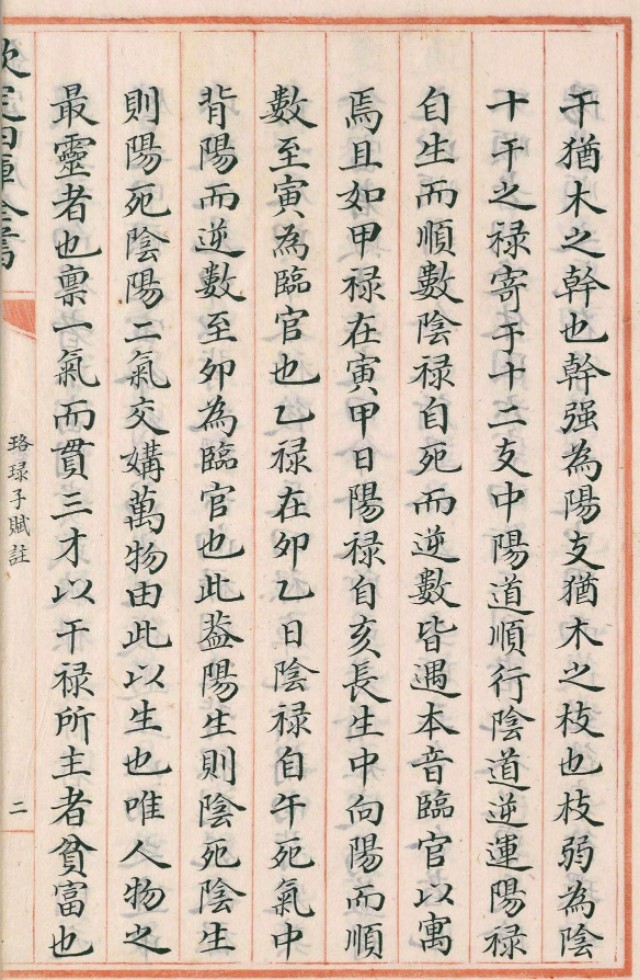 干猶木之幹也幹强為陽支猶木之枝也枝弱為陰
十干之禄寄于十二支中陽道順行陰道逆運陽禄
自生而順數陰禄自死而逆數皆遇本音臨官以寓
焉且如甲禄在寅甲日陽禄自亥長生中向陽而順
數至寅為臨官也乙禄在卯乙日陰禄自午死氣中
背陽而逆數至卯為臨官也此葢陽生則陰死陰生
則陽死陰陽二氣交媾萬物由此以生也唯人物之
最靈者也禀一氣而貫三才以干禄所主者貧富也
欽定四庫全書
珞琭子賦註
二